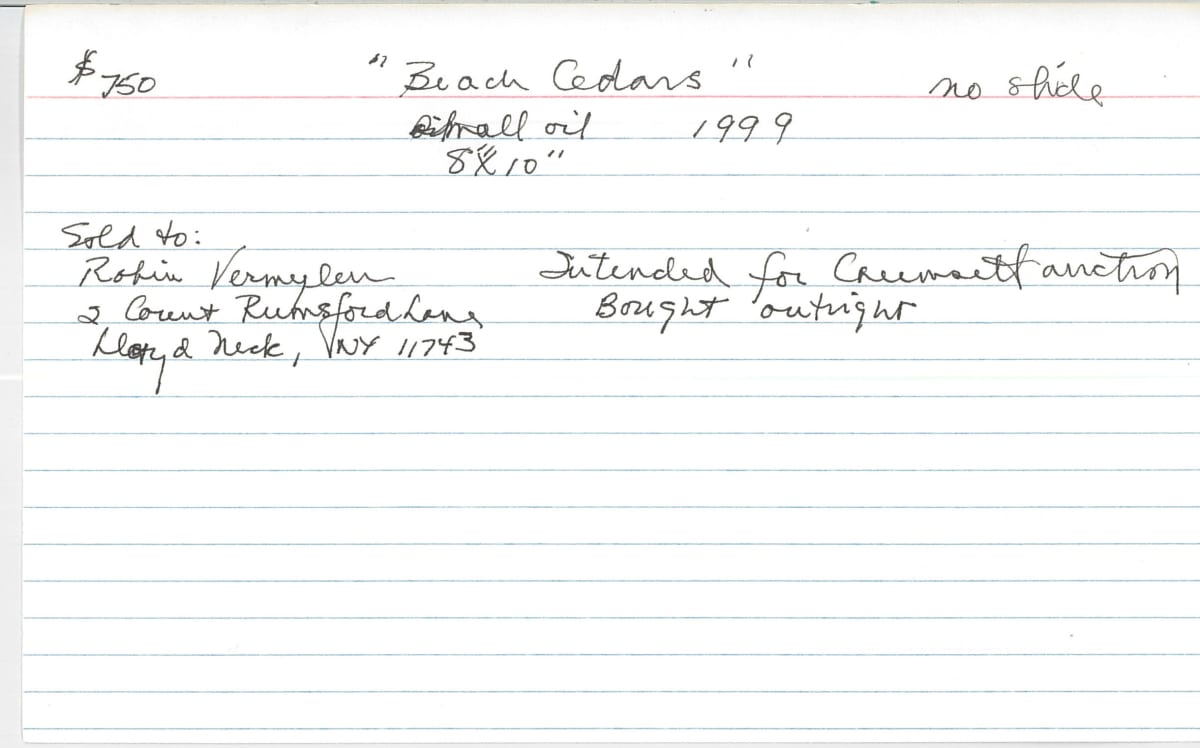 $750 "Beach Cedars" no slide
small oil 1999
8"X10"
Sold to:
Robin Vermylen Intended for Caumsett auction
2 Count Rumsford Lane Bought outright
Lloyd Neck, NY 11743